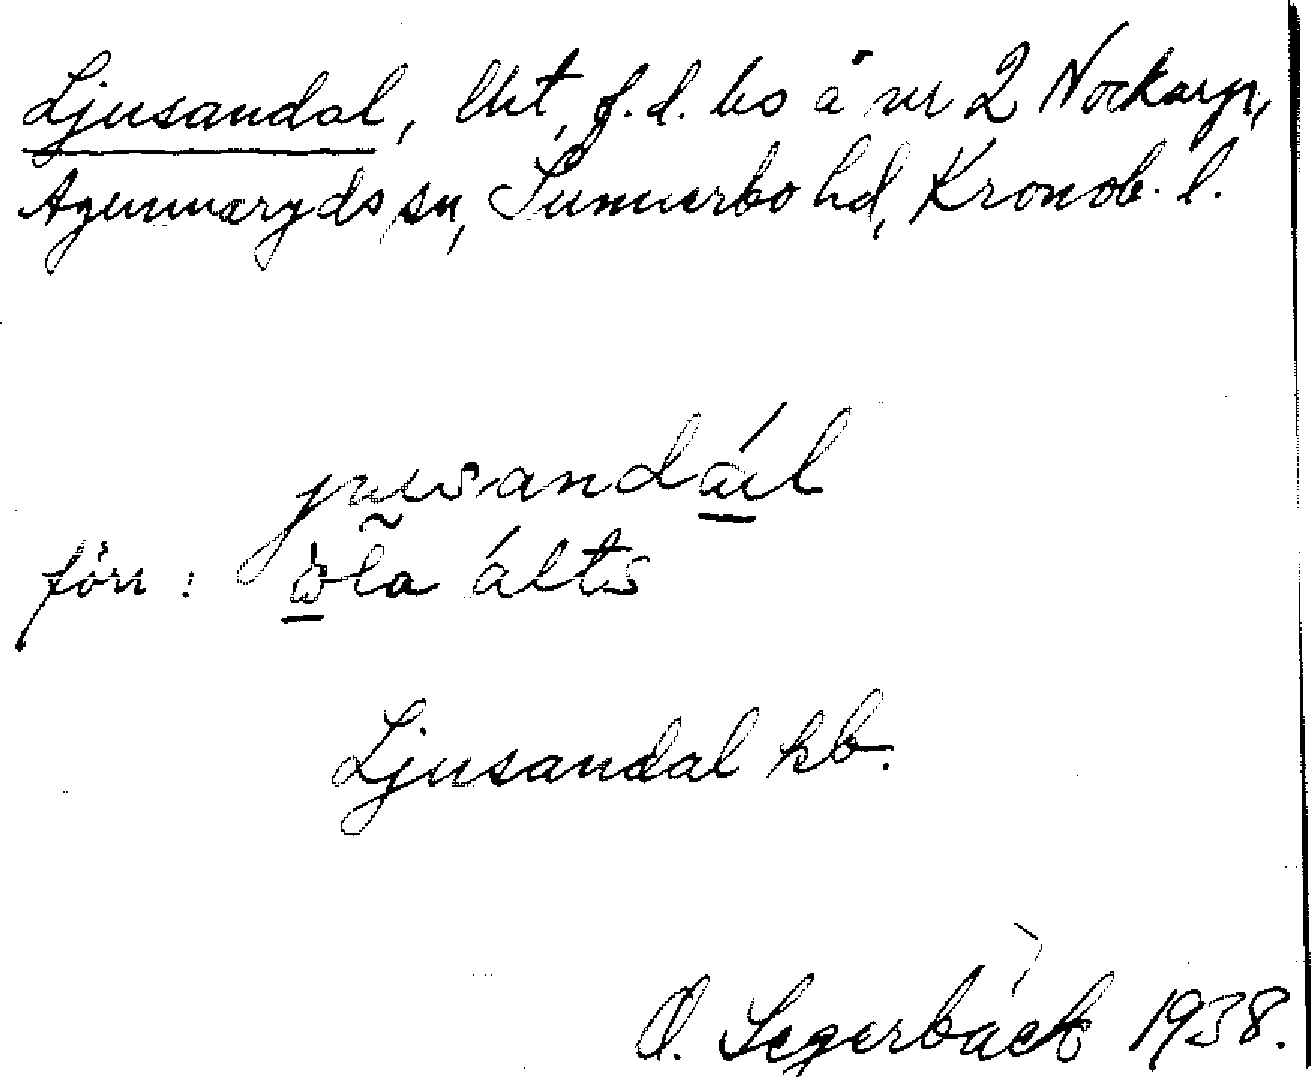 Ljusandal, lht, f.d. bs å nr 2 Nockarp,
Agunnaryds sn, Sunnerbo hd, Kronob. l.
jusandál
förr : öla álts
Ljusandal hb.
O. Segerbäck 1938.